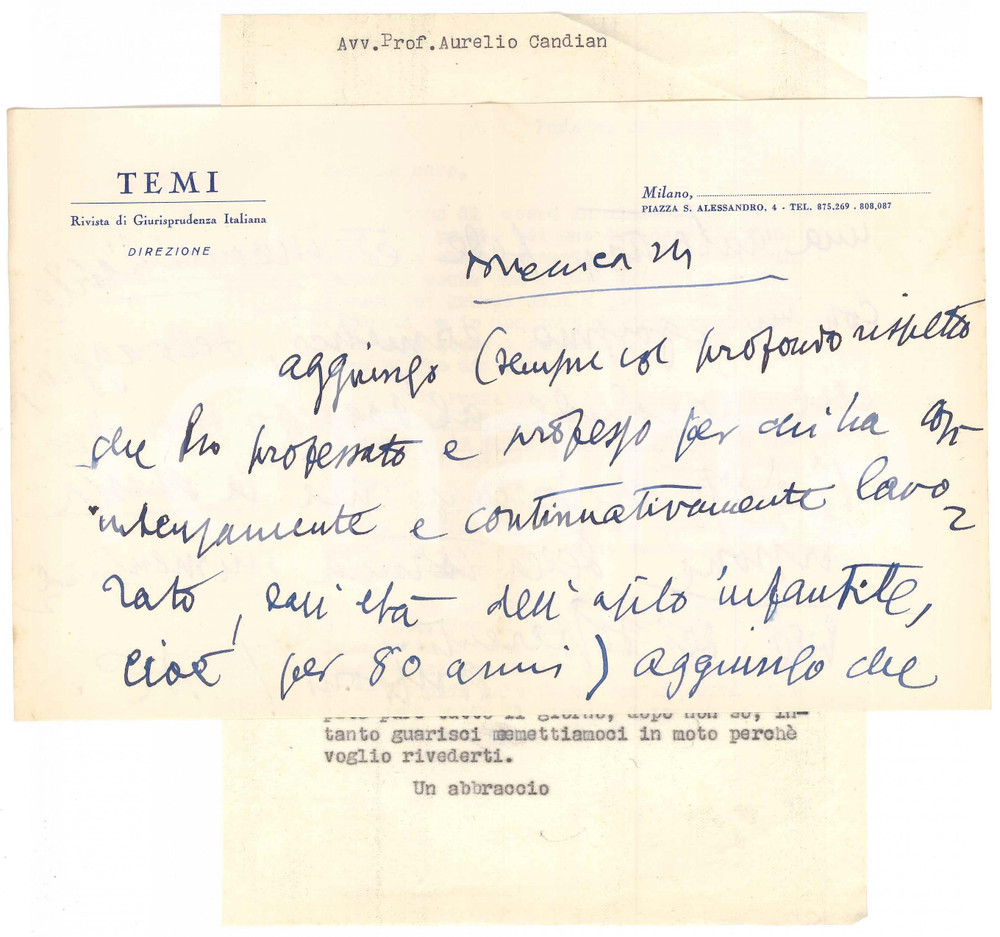 Avv.Prof.Aurelio Candian
TEMI
Rivista di Giurisprudenza Italiana
DIREZIONE
Milano,
PIAZZA S. ALESSANDRO, 4 - TEL. 875.269 . 808.087
Domenica 24
aggiungo (sempre col profondo rispetto
che ho professato e professo per chi ha così
intensamente e continuativamente lavo
rato, sull'età dell'asilo infantile,
cioè per 80 anni) aggiungo che
tutto il giorno, dopo non so, in-
tanto guarisci memettiamoci in moto perchè
voglio rivederti.
Un abbraccio